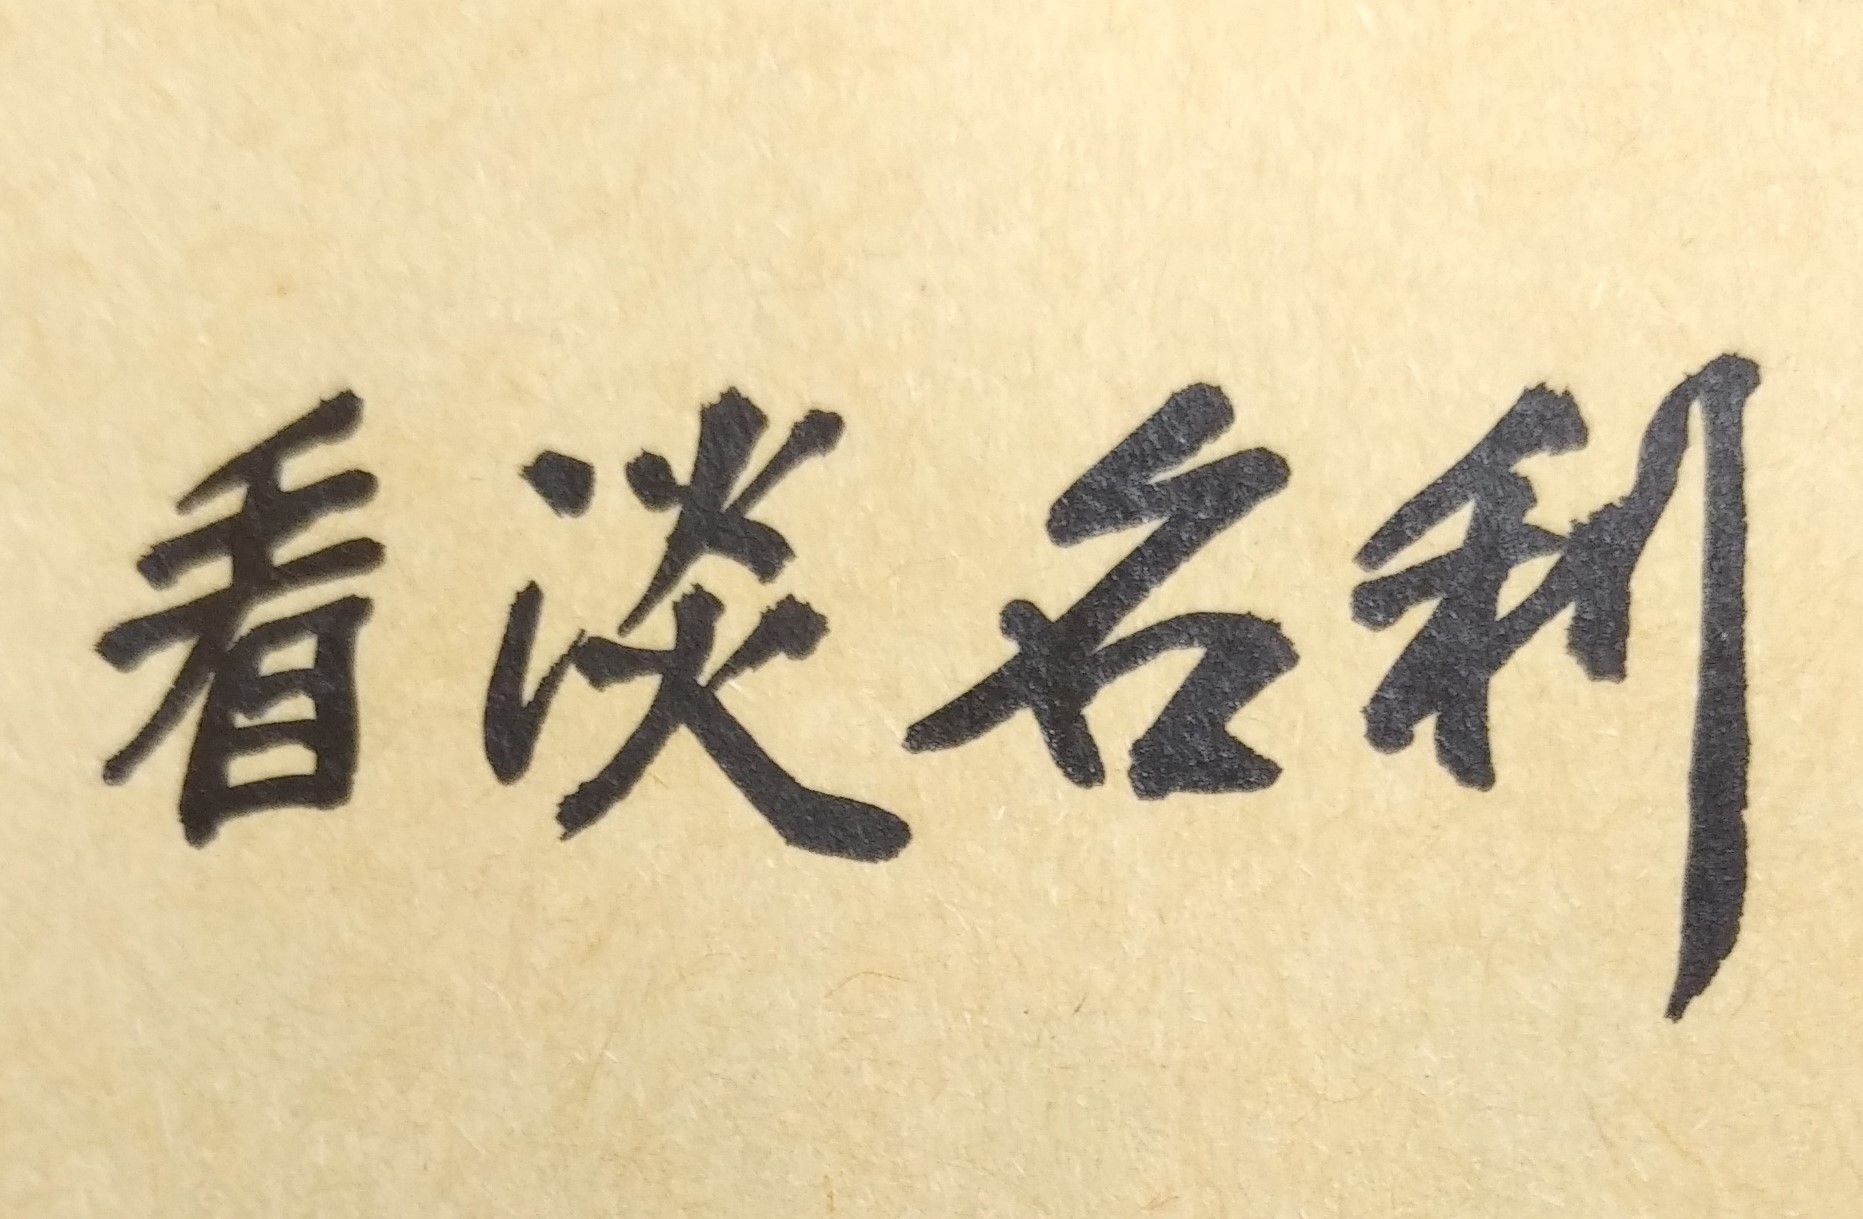 看淡名利